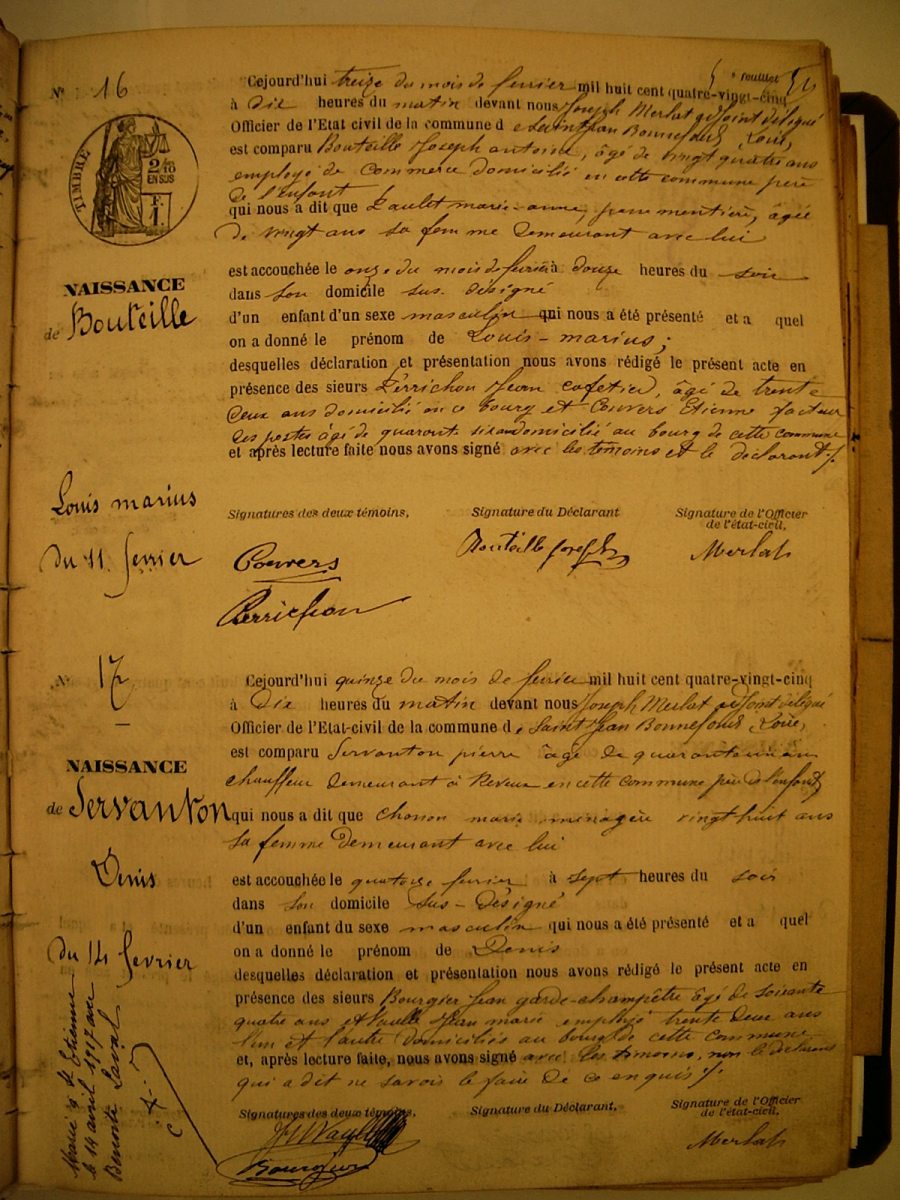 5e feuillet 5
N° 16
TIMBRE
2 des 10
EN SUS
NAISSANCE
de Bouteille
Louis marius
du 11 fevrier
Cejourd'hui treize du mois de fevrier mil huit cent quatre-vingt-cinq
à Dix heures du matin devant nous Joseph Merlat adjoint délégué
Officier de l'Etat civil de la commune d e Saint Jean Bonnefonds, Loire,
est comparu Bouteille Joseph antoine, âgé de vingt quatre ans
employé de commerce domicilié en cette commune père
de l'enfant
qui nous a dit que marie-anne, âgée
de vingt ans sa femme demeurant avec lui
est accouchée le onze du mois de fevrier à douze heures du soir
dans son domicile sus-désigné
d'un enfant d'un sexe masculin qui nous a été présenté et a quel
on a donné le prénom de Louis-marius;
desquelles déclaration et présentation nous avons rédigé le présent acte en
présence des sieurs Perrichon Jean cafetier, âgé de trente
deux ans domicilié en ce bourg et Couvers Etienne facteur
des postes âgé de quarante six ans domicilié au bourg de cette commune
et après lecture faite nous avons signé avec les témoins et le déclarant ./.
Signatures des deux témoins,
Signature du Déclarant
Signature de l'Officier
de l'état-civil,
Couvers
Bouteille joseph
Merlat
Perrichon
N° 17
NAISSANCE
de Servanton
Denis
du 14 fevrier
Marié à St Etienne
le 14 avril 1917 avec
Benoite Laval
Cejourd'hui quinze du mois de fevrier mil huit cent quatre-vingt-cinq
à Dix heures du matin devant nous Joseph Merlat adjoint délégué
Officier de l'Etat-civil de la commune d e Saint Jean Bonnefonds, Loire,
est comparu Servanton pierre âgé de quarante un an
chauffeur demeurant à Reveux en cette commune père de l'enfant
qui nous a dit que Chonon marie ménagère vingt huit ans
sa femme demeurant avec lui
est accouchée le quatorze fevrier à sept heures du soir
dans son domicile sus-désigné
d'un enfant du sexe masculin qui nous a été présenté et a quel
on a donné le prénom de Denis
desquelles déclaration et présentation nous avons rédigé le présent acte en
présence des sieurs Bourgier Jean garde-champêtre âgé de soixante
quatre ans et Jean marie employé trente deux ans
l'un et l'autre domiciliés au bourg de cette commune
et, après lecture faite, nous avons signé avec les témoins, non le déclarant
qui a dit ne savoir le faire de ce enquis ./.
Signatures des deux témoins,
Signature du Déclarant,
Signature de l'Officier
de l'état-civil,
Bourgier
Merlat